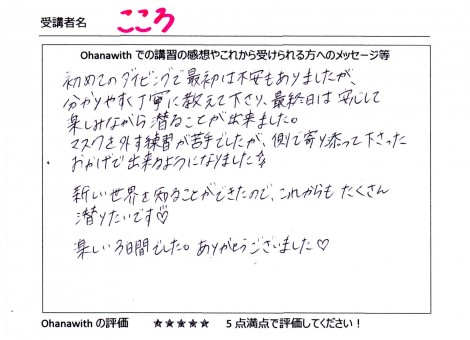 受講者名 こころ
Ohanawith での講習の感想やこれから受けられる方へのメッセージ等
初めてのダイビングで最初は不安もありましたが、
分かりやすく丁寧に教えて下さり、最終日は安心して
楽しみながら潜ることが出来ました。
マスクを外す練習が苦手でしたが、側で寄り添って下さった
おかげで出来るようになりました☆
新しい世界を知ることができたので、これからもたくさん
潜りたいです♡
楽しい3日間でした。ありがとうございました♡
Ohanawith の評価 ★★★★★ 5点満点で評価してください！